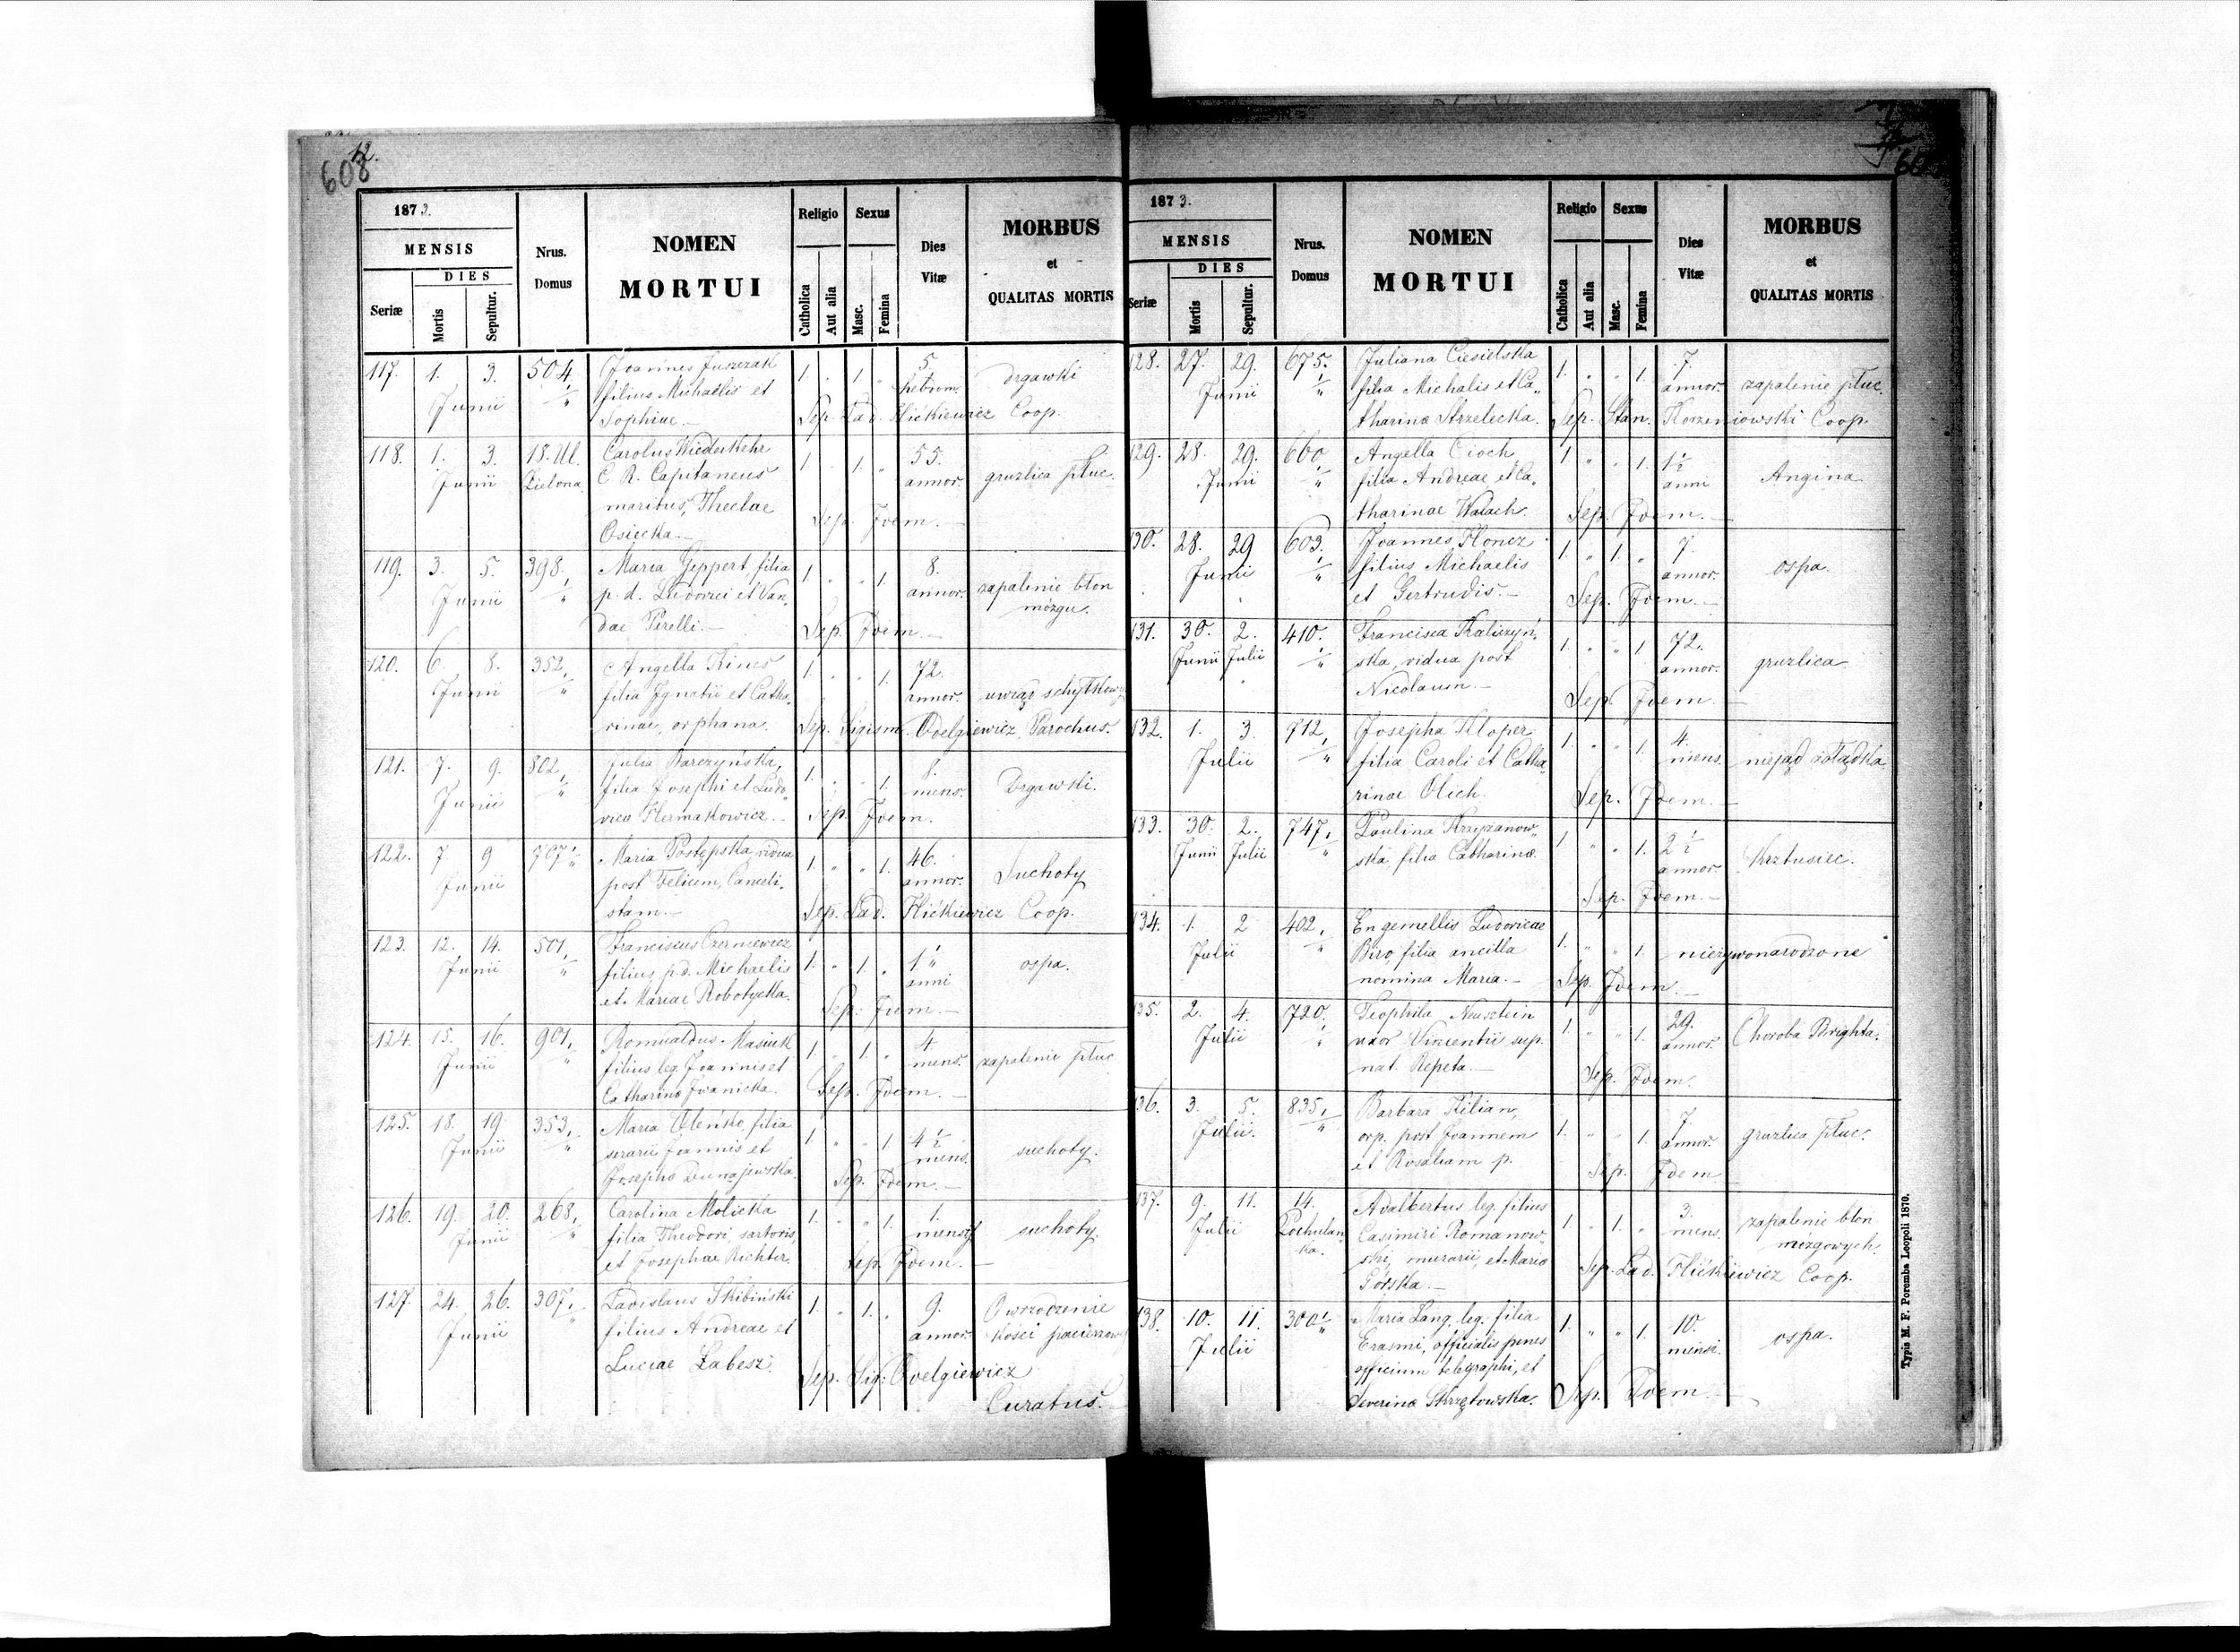 12.
608
1873.
MENSIS
DIES
Seriæ
Mortis
Sepultur.
Nrus.
Domus
NOMEN
MORTUI
Religio
Catholica
Aut alia
Sexus
Masc.
Femina
Dies
Vitæ
MORBUS
et
QUALITAS MORTIS
117. 1. 3. 504. Joannes Juszczak 1. . 1. „ 5. drgawki
Junii filius Michaelis et hebdom.
Sophiae.— Sep. Lad. Hićkiewicz Coop.
118. 1. 3. 18. Ul. Carolus Wiederkehr 1. 1. „ 55. gruzlica płuc.
Junii Zielona C. R. Capitaneus annor.
maritus, Theclae Sep. Idem.—
Osiecka.—
119. 3. 5. 398. Maria Geppert, filia 1. „ „ 1. 8. zapalenie błon
Junii p. d. Ludovici et Van„ annor. mózgu.
dae Perelli.— Sep. Idem.—
120. 6. 8. 352. Angella Kines 1. „ „ 1. 72. uwiąz schyłkowy
Junii filia Ignatii et Catha„ annor.
rinae, orphana. Sep. Sigism. Odelgiewicz, Parochus.
121. 7. 9. 802. Julia Barczyńska, 1. „ 1. 8. Drgawki.
Junii filia Josephi et Ludo„ mens.
vica Hermakowicz.— Sep. Idem.
122. 7. 9 707 Maria Postępska, vidua 1. „ „ 1. 46. Suchoty
Junii post Felicem, Cancelli„ annor.
stam.— Sep. Lad. Hićkiewicz Coop.
123. 12. 14. 501. Franciscus Czerniewicz 1. „ 1. „ 1 ospa.
Junii filius p. d. Michaelis anni
et Mariae Robotycka. Sep. Idem.—
124. 15. 16. 901. Romualdus Masiuk 1. „ 1. „ 4. zapalenie płuc
Junii filius leg. Joannis et mens.
Catharina Iwanicka. Sep. Idem.—
125. 18. 19. 353. Maria Oleńko, filia 1. „ „ 1. 4½ suchoty.
Junii serarii Joannis et mens.
Josepha Dunajewska. Sep. Idem.—
126. 19. 20. 268. Carolina Molicka 1. „ „ 1. 1. suchoty.
Junii filia Theodori, sartoris, mensis
et Josephae Richter. Sep. Idem.—
127. 24. 26. 307. Ladislaus Skibiński 1. „ 1. „ 9. Owrzodzenie
Junii filius Andreae et annor. kości pacierzowej
Luciae Łabesz. Sep. Sig: Odelgiewicz
Curatus.
60
1873.
MENSIS
DIES
Seriæ
Mortis
Sepultur.
Nrus.
Domus
NOMEN
MORTUI
Religio
Catholica
Aut alia
Sexus
Masc.
Femina
Dies
Vitæ
MORBUS
et
QUALITAS MORTIS
128. 27. 29. 675. Juliana Ciesielska 1. „ „ 1. 7. zapalenie płuc.
Junii filia Michalis et Ca„ annor.
tharina Strzelecka. Sep. Stan. Korzeniowski Coop.
129. 28. 29. 660. Angella Cioch 1. „ „ 1. 1½ Angina
Junii filia Andreae et Ca„ anni
tharinae Walach. Sep. Idem.—
130. 28. 29 603. Joannes Koncz 1. „ 1. „ 7. ospa.
Junii filius Michaelis annor.
et Gertrudis.— Sep. Idem.—
131. 30. 2. 410. Francisca Kaliszyń„ 1. „ „ 1. 72. gruzlica
Junii Julii ska, vidua post annor.
Nicolaum.— Sep. Idem—
132. 1. 3. 712. Josepha Kloper 1. „ „ 1. 4. niejąd żołądka
Julii filia Caroli et Catha„ mens.
rinae Olich. Sep. Idem.—
133. 30. 2. 747. Paulina Krzyżanow„ 1 „ „ 1. 2½ Krztusiec.
Junii Julii ska, filia Catharinæ. annor.
Sep. Idem.—
134. 1. 2 402. En gemellis Ludovicae 1. „ „ 1. nieżywonarodzone
Julii Biro, filia ancilla
nomina Maria.— Sep. Idem.—
135. 2. 4. 720. Teophila Neusztein 1. „ „ 1. 29. Choroba Brighta.
Julii uxor Vincentii sup. annor.
nat. Repeta.— Sep. Idem.
136. 3. 5. 835. Barbara Kilian, 1. „ „ 1. 7. gruzlica płuc.
Julii. orp. post Joannem annor.
et Rosaliam p. Sep. Idem
137. 9. 11. 14. Adalbertus leg. filius 1. „ 1. „ 3. zapalenie błon
Julii Pochulan Casimiri Romanow„ mens. mózgowych.
ka. ski, murarii, et Maria Sep. Lad. Hićkiewicz Coop.
Górska.—
138. 10. 11. 300 Maria Lang, leg. filia 1. „ „ 1. 10. ospa.
Julii Erasmi, officialis penes mensi.
officium telegraphi, et
Severina Skrzętowska. Sep. Idem—
Typis M. F. Poremba Leopoli 1870.